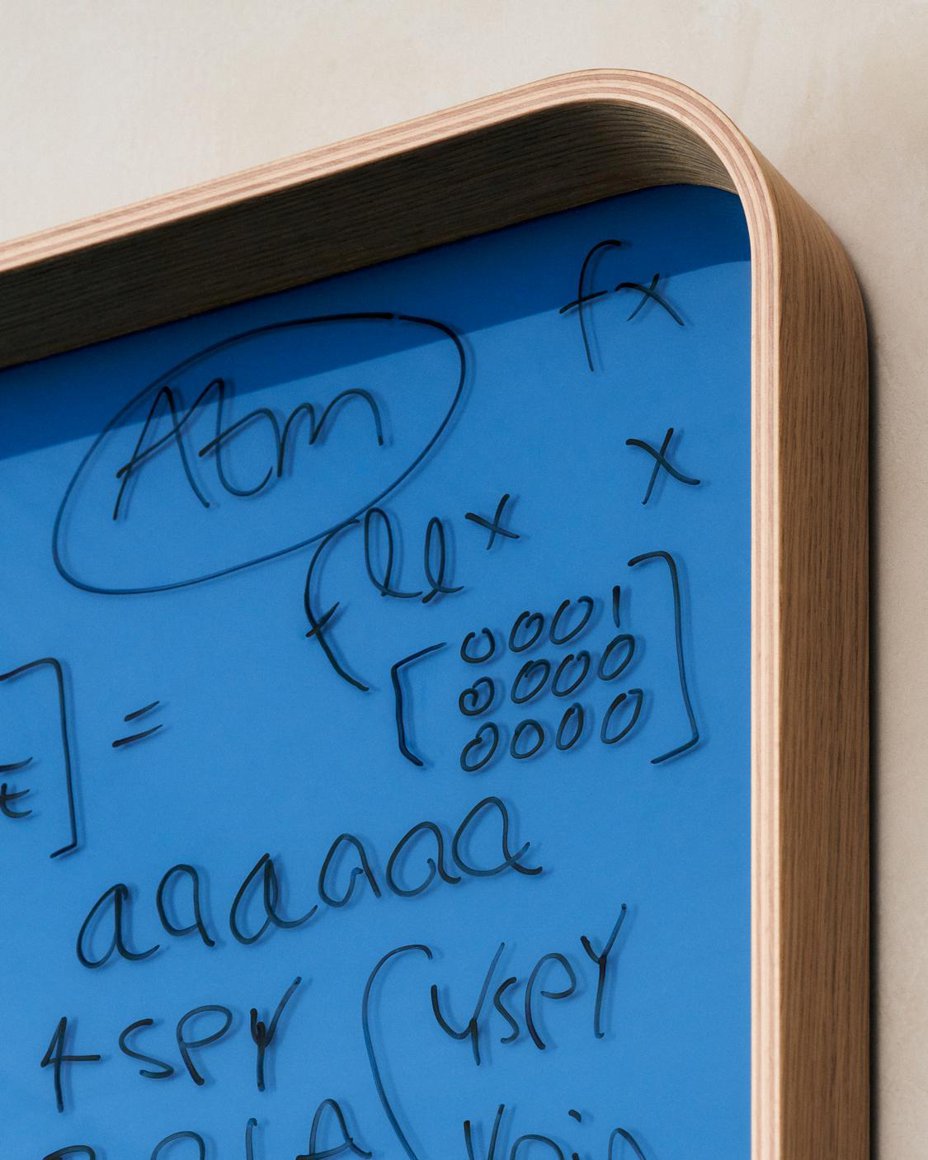 fx
Atm
x
flex
0001
] = [ 0000 ]
0000
aaaaaa
4SPY ( 4SPY